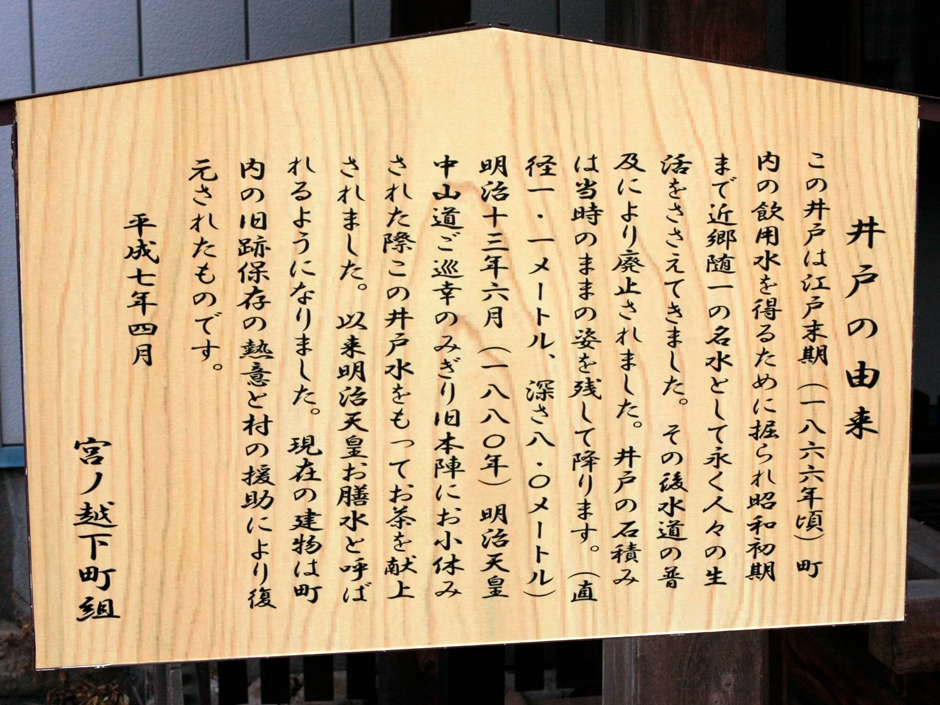 井戸の由来
この井戸は江戸末期(一八六六年頃)町
内の飲用水を得るために掘られ昭和初期
まで近郷随一の名水として永く人々の生
活をささえてきました。その後水道の普
及により廃止されました。井戸の石積み
は当時のままの姿を残して降ります。(直
径一・一メートル、深さ八・〇メートル)
明治十三年六月(一八八〇年)明治天皇
中山道ご巡幸のみぎり旧本陣にお小休み
された際この井戸水をもってお茶を献上
されました。以来明治天皇お膳水と呼ば
れるようになりました。現在の建物は町
内の旧跡保存の熱意と村の援助により復
元されたものです。
平成七年四月
宮ノ越下町組